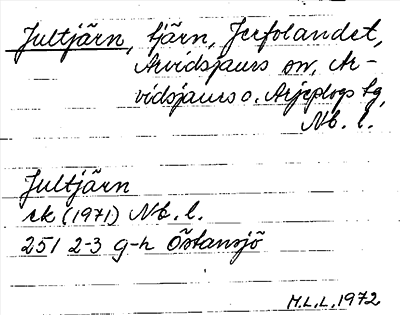 Jultjärn, tjärn, Jerfolandet,
Arvidsjaurs sn, Ar-
vidsjaurs o. Arjeplogs tg,
Nb. l.
Jultjärn
rk (1971) Nb. l.
251 2-3 g-h Östansjö
M.L.L. 1972